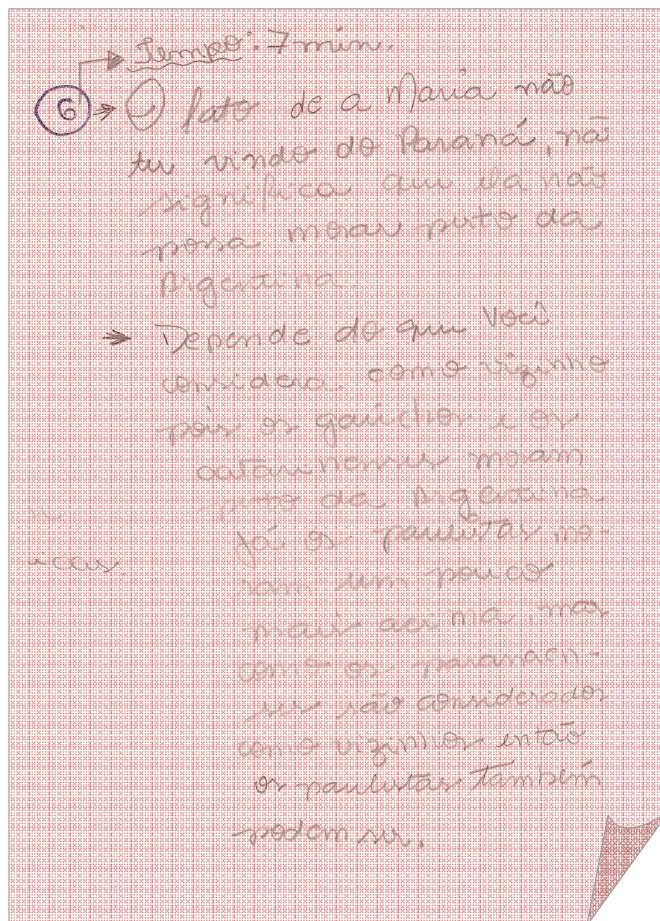 Tempo: 7 min.
6 O fato de a Maria não
ter vindo do Paraná, não
significa que ela não
possa morar perto da
Argentina.
Depende do que você
considera como vizinho
pois os gaúchos e os
catarinenses moram
perto da Argentina
Já os paulistas mo-
ram um pouco
mais acima, mas
como os paranaen-
ses são considerados
como vizinhos então
os paulistas também
podem ser.